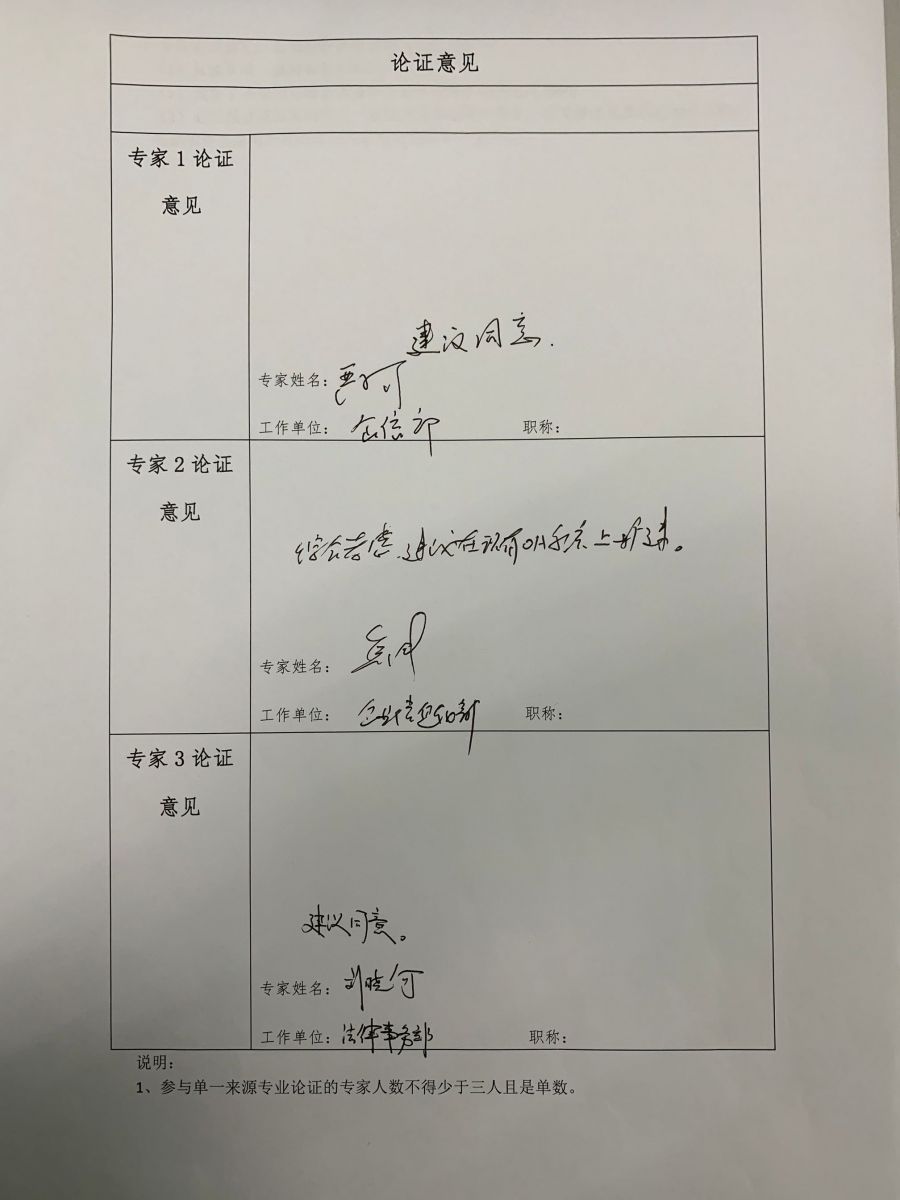 论证意见
专家1论证
意见
建议同意.
专家姓名：
工作单位：企信部 职称：
专家2论证
意见
综合考虑,建议在现有OA系统上扩建。
专家姓名：
工作单位：企业信息化部 职称：
专家3论证
意见
建议同意。
专家姓名：刘晓何
工作单位：法律事务部 职称：
说明：
1、参与单一来源专业论证的专家人数不得少于三人且是单数。